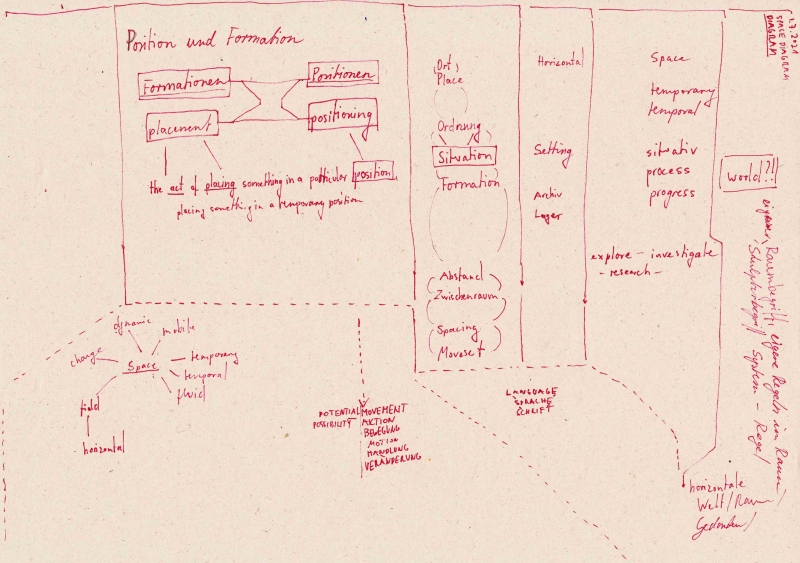 Position und Formation
Formationen
Positionen
placement
positioning
the act of placing something in a particular position,
placing something in a temporary position
(Ort)
Place
Ordnung
Situation
Formation
Abstand
Zwischenraum
Spacing
Horizontal
Setting
Archiv
Lager
Space
temporary
temporal
situativ
process
progress
explore – investigate
– research –
1.7.2021
SPACE DIAGRAM
DIAGRAM
World?!
Raumbegriff, eigene Regeln im Raum/
Skulpturbegriff System – Regel
dynamic
mobile
change
Space
temporary
temporal
fluid
field
horizontal
POTENTIAL
POSSIBILITY
MOVEMENT
AKTION
BEWEGUNG
MOTION
HANDLUNG
VERÄNDERUNG
LANGUAGE
SPRACHE
SCHRIFT
horizontale
Welt/Raum/
Gedanken/